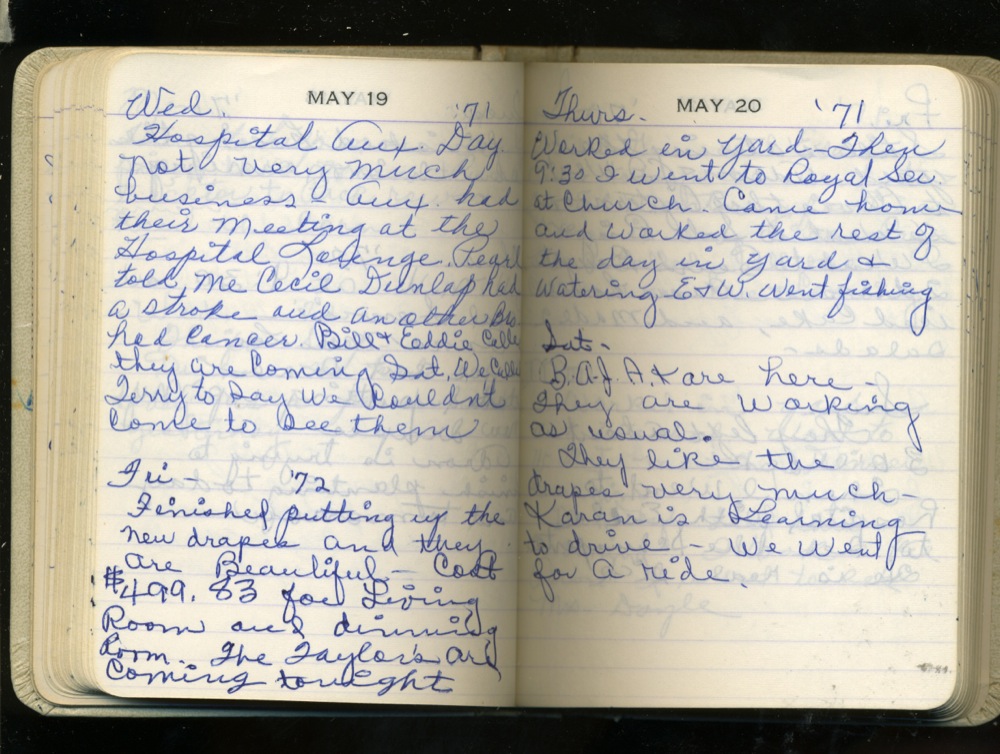 MAY 19
Wed. '71
Hospital Aux. Day
not very much
business - Aux. had
their Meeting at the
Hospital Lounge. Pearl
told Me Cecil Dunlap had
a stroke and another Bro.
had Cancer. Bill & Eddie Called
they are Coming Sat. We Called
Terry to Say We Couldn't
Come to See them
Fri - '72
Finished putting up the
new drapes and they
are Beautiful - Cost
$499.83 for Living
Room and dinning
Room. The Taylor's are
Coming tonight
MAY 20
Thurs. '71
Worked in Yard - Then
9:30 I went to Royal Ser.
at Church. Came home
and worked the rest of
the day in Yard &
Watering E & W. Went fishing
Sat -
B.A.J. A. K are here -
They are Working
as usual.
They like the
drapes very much -
Karan is Learning
to drive - We Went
for a ride.